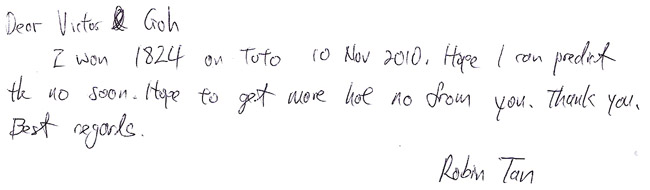 Dear Victor Goh
I won 1824 on Toto 10 Nov 2010. Hope I can predict
the no soon. Hope to get more hot no from you. Thank you.
Best regards.
Robin Tan